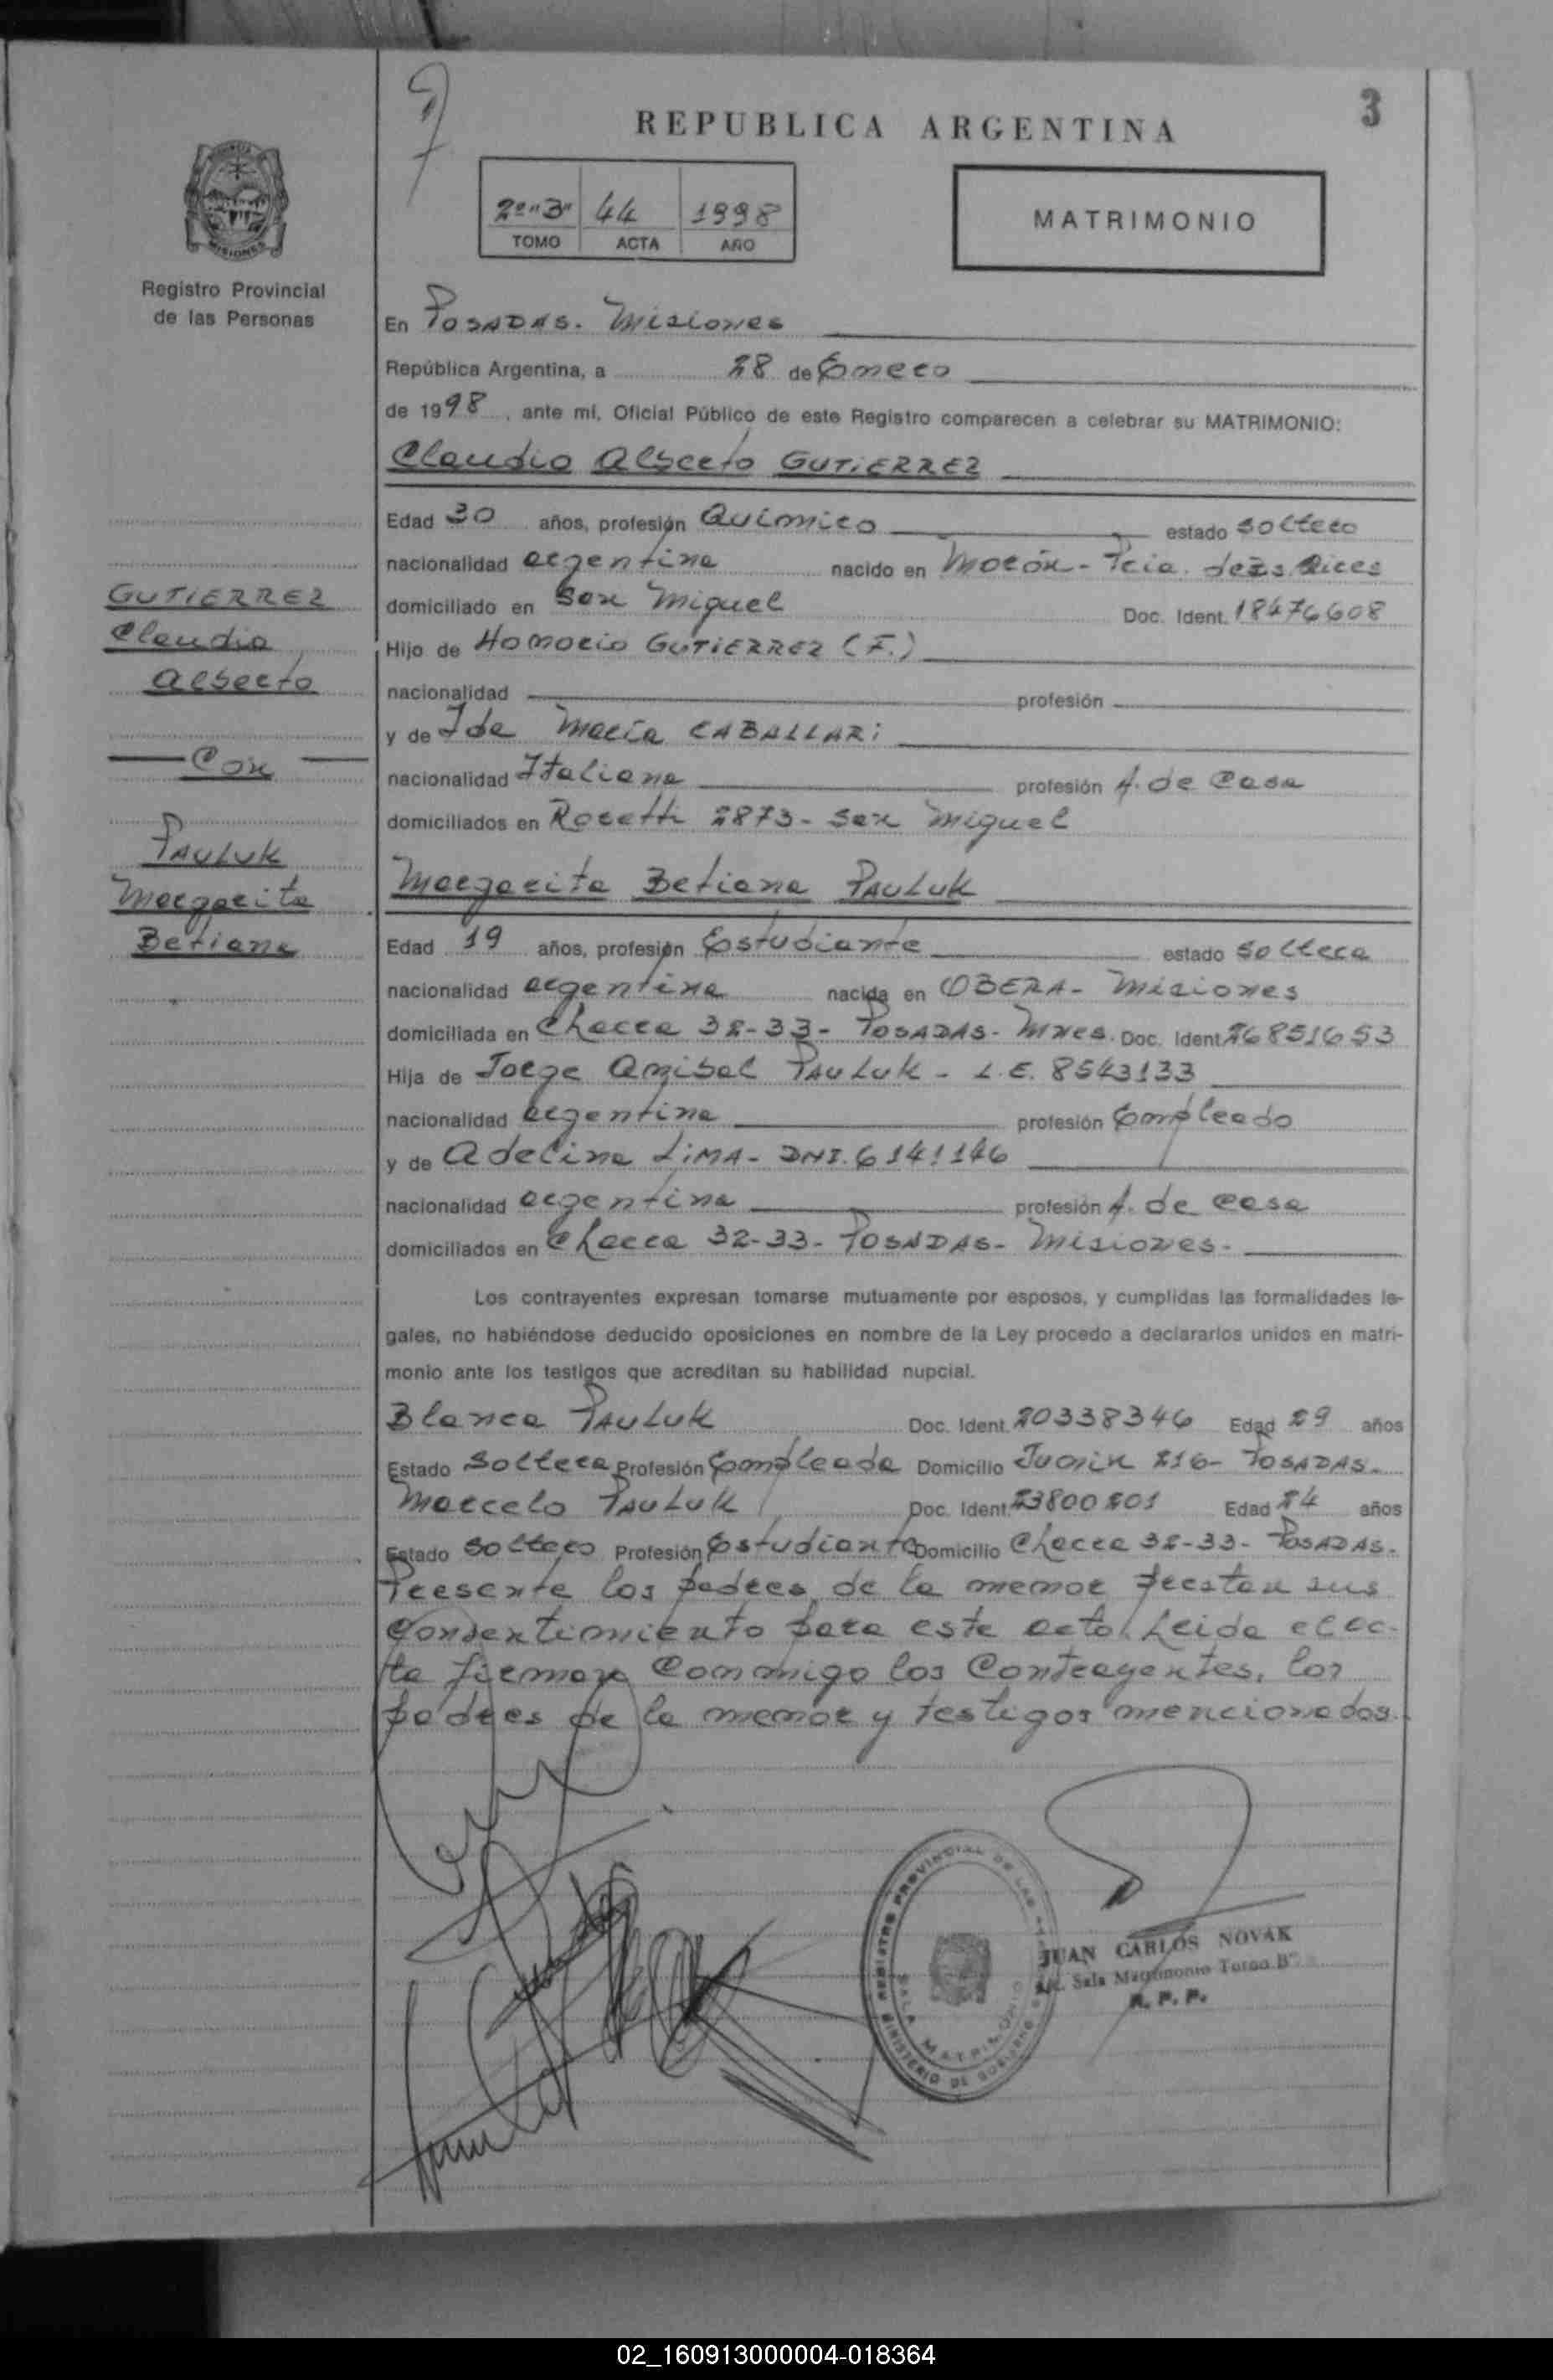 3
REPUBLICA ARGENTINA
2º "3" 44 1998
TOMO ACTA AÑO
MATRIMONIO
MISIONES
Registro Provincial
de las Personas
En POSADAS. Misiones
República Argentina, a 28 de Enero
de 1998, ante mí, Oficial Público de este Registro comparecen a celebrar su MATRIMONIO:
Claudio Alberto GUTIERREZ
Edad 30 años, profesión Químico estado soltero
nacionalidad argentina nacido en Morón - Pcia. de Bs. Aires
domiciliado en San Miguel Doc. Ident. 18476608
Hijo de Honorio GUTIERREZ (F.)
nacionalidad profesión
y de Ida María CABALLARI
nacionalidad Italiana profesión A. de Casa
domiciliados en Rosetti 2873 - San Miguel
Margarita Betiana PAULUK
Edad 19 años, profesión Estudiante estado soltera
nacionalidad argentina nacida en OBERA - Misiones
domiciliada en Chacra 32-33 - POSADAS - Mnes. Doc. Ident. 26851653
Hija de Jorge Anibal PAULUK - L.E. 8543133
nacionalidad argentina profesión Empleado
y de Adelina LIMA - DNI. 6141146
nacionalidad argentina profesión A. de casa
domiciliados en Chacra 32-33 - POSADAS - Misiones.
Los contrayentes expresan tomarse mutuamente por esposos, y cumplidas las formalidades le-
gales, no habiéndose deducido oposiciones en nombre de la Ley procedo a declararlos unidos en matri-
monio ante los testigos que acreditan su habilidad nupcial.
Blanca PAULUK Doc. Ident. 20338346 Edad 29 años
Estado Soltera Profesión Empleada Domicilio Junín 216 - POSADAS.
Marcelo PAULUK Doc. Ident. 23800201 Edad 24 años
Estado soltero Profesión Estudiante Domicilio Chacra 32-33 - POSADAS.
Presente los padres de la menor prestan sus
consentimiento para este acto. Leida el ac-
ta firman conmigo los Contrayentes, los
padres de la menor y testigos mencionados.
GUTIERREZ
Claudio
Alberto
Con
PAULUK
Margarita
Betiana
REGISTRO PROVINCIAL DE LAS
SALA MATRIMONIO
MINISTERIO DE GOBIERNO
JUAN CARLOS NOVAK
Sala Matrimonio Turno B"
R. P. P.
02_160913000004-018364